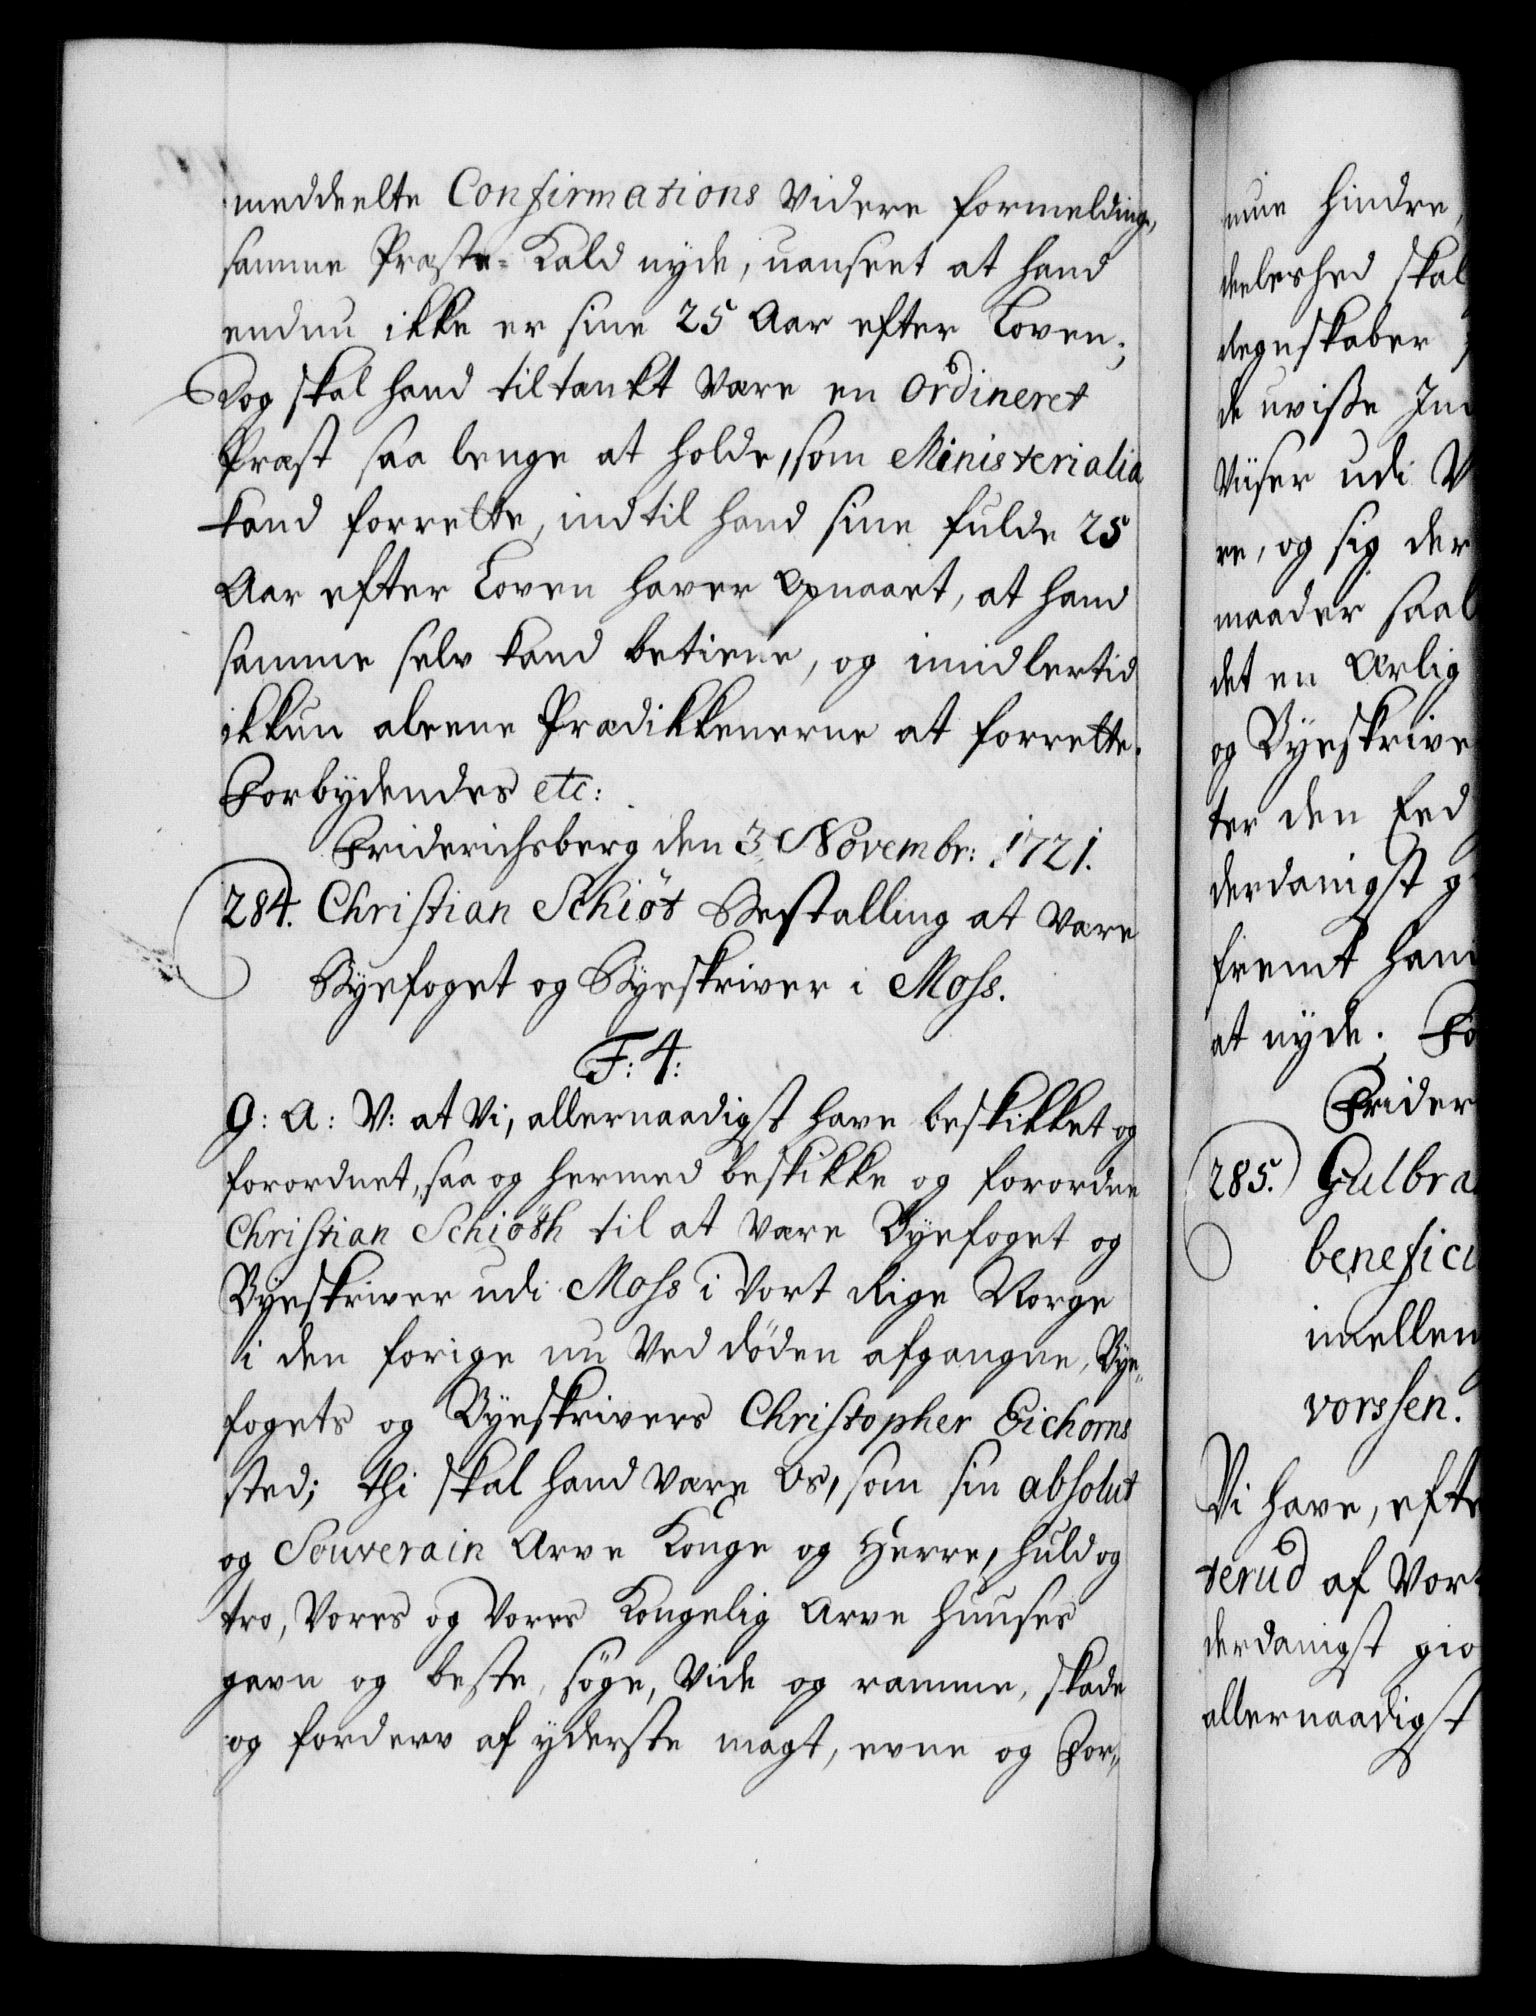 meddeelte Confirmations videre formelding,
samme Præste-Kald nyde, uanseet at hand
endnu ikke er sine 25 Aar efter Loven;
Dog skal hand tiltænkt være en ordineret
Præst saa lenge at holde, som Ministerialia
kand forrette, indtil hand sine fulde 25
Aar efter Loven haver opnaaet, at hand
samme selv kand betiene, og imidlertid
ikkun aleene Prædikkenerne at forrette.
Forbydendes etc:
Friderichsberg den 3 Novembr: 1721.
284. Christian Schiöt Bestalling at være
Byefoget og Byeskriver i Moss.
F: 4:
G: A: V: at Vi, allernaadigst have beskikket og
forordnet, saa og hermed beskikke og forordne
Christian Schiöth til at være Byefoget og
Byeskriver udi Moss i Vort Rige Norge
i den forige nu ved döden afgangne, Bye-
fogets og Byeskrivers Christopher Eichorns
sted; thi skal hand være Os, som sin absolut
og Souverain Arve Konge og Herre, huld og
tro, Vores og Vores Kongelig Arve Huuses
gavn og beste, söge, vide og ramme, skade
og forderv af yderste magt, evne og For-
hindre,
deeleshed skal
Regnskaber
de uvisse Ind
Viiser udi V
re, og sig der
maader saal
det en Ærlig
og Byeskrive
ter den Eed
derdanigst g
fremt hand
at nyde. Fo
Frider
285. Gulbra
benefici
imellem
vorssen.
Vi have, efte
terud af Vort
derdanigst gio
allernaadigst